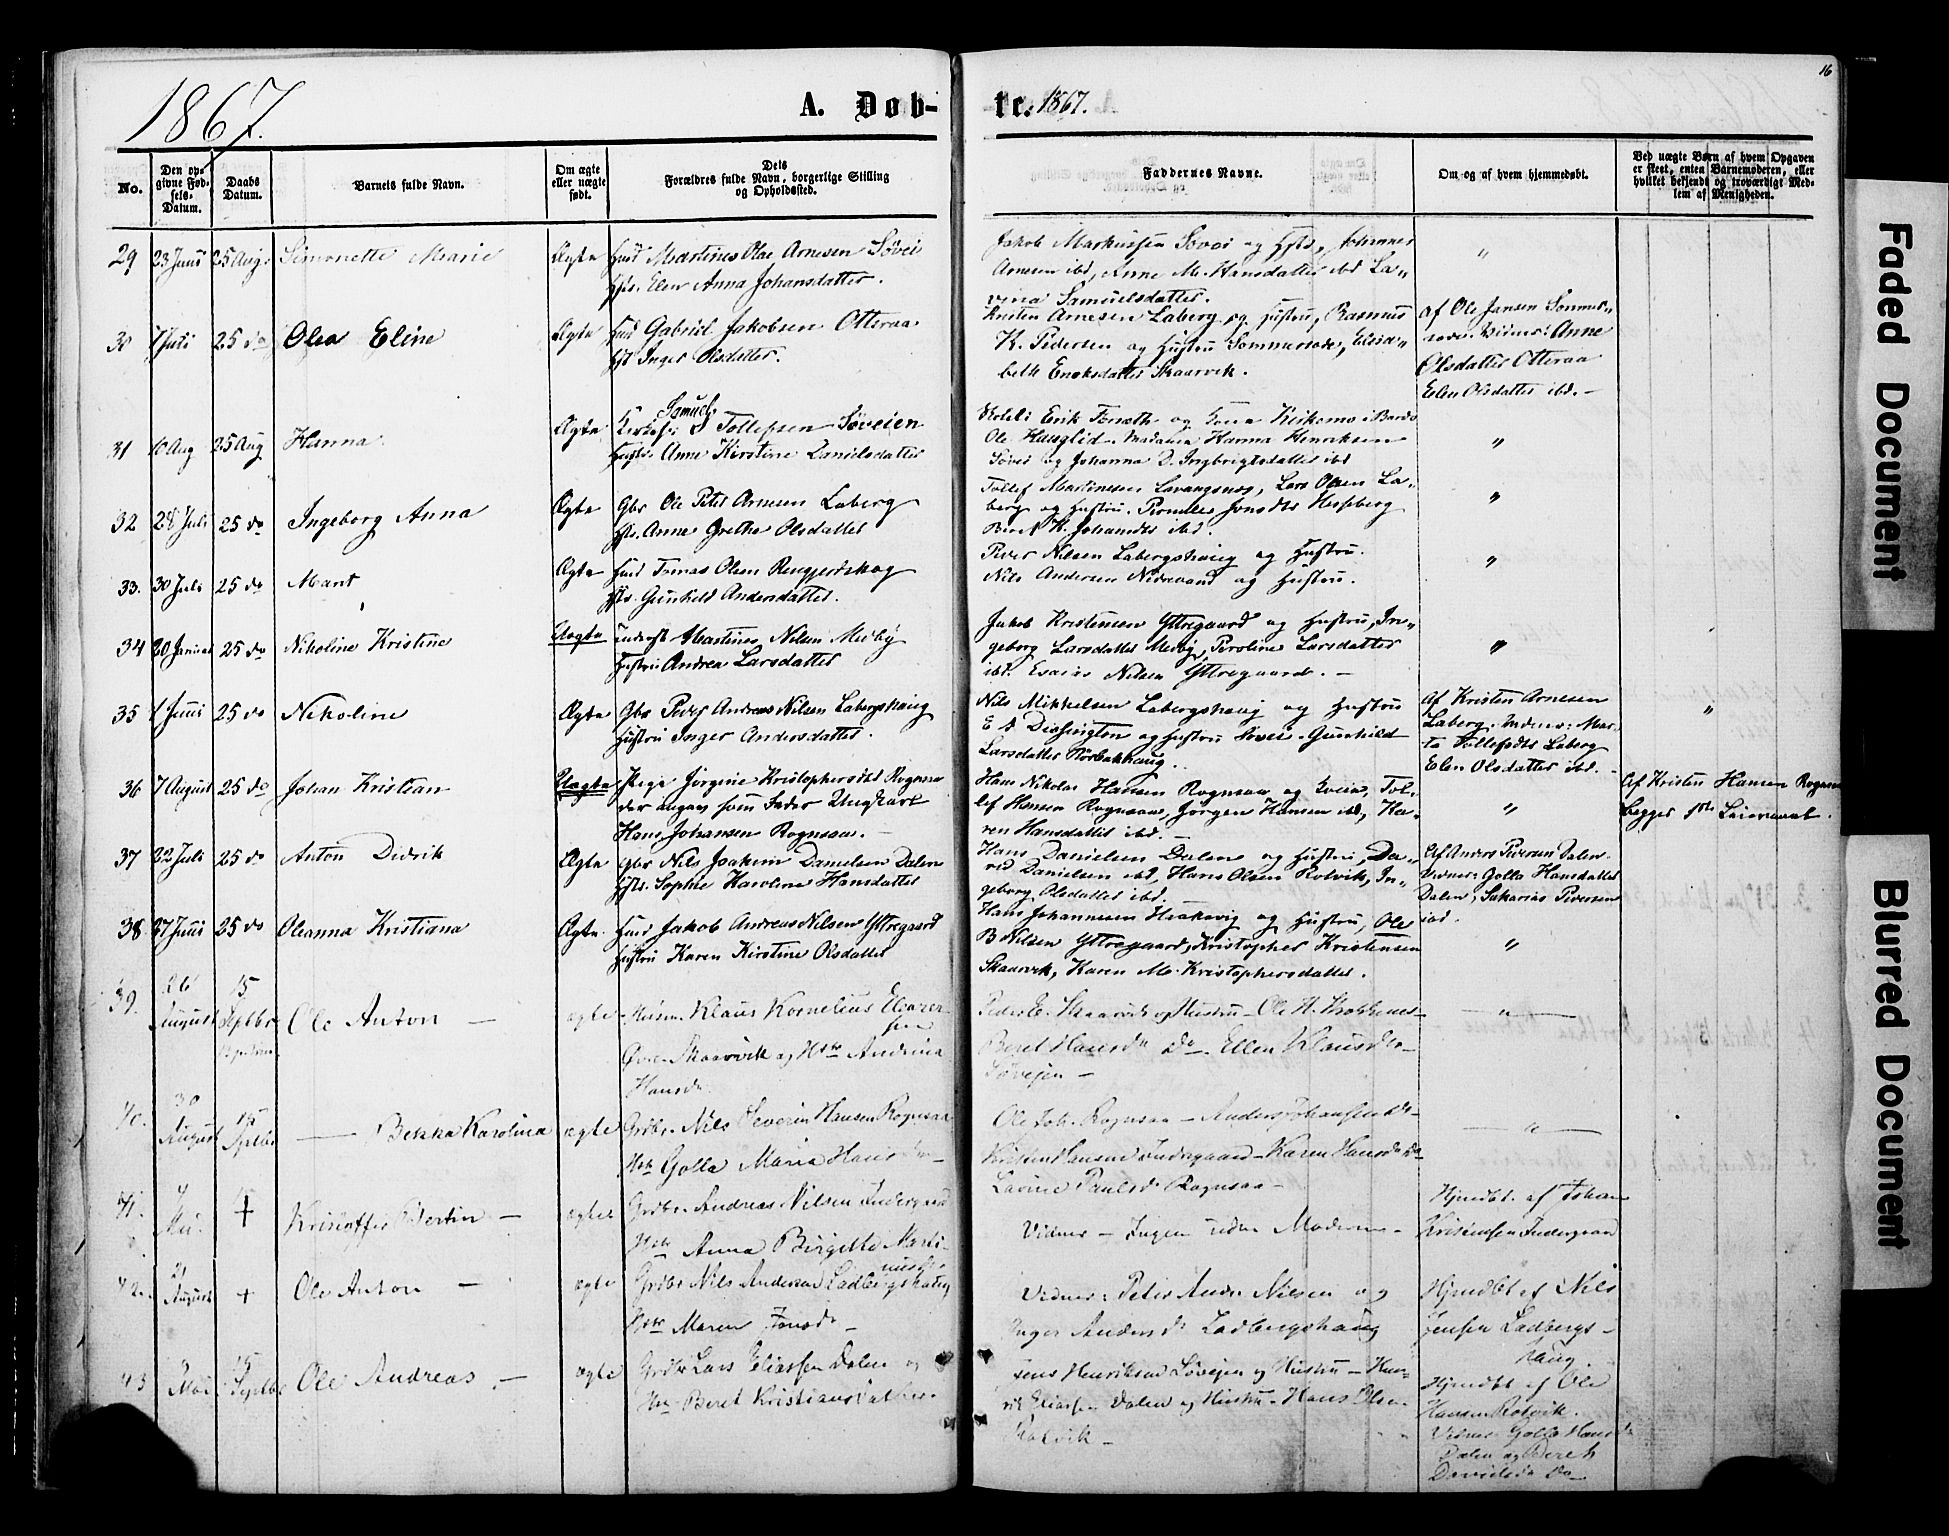 16
1867.
A. Døb-
te. 1867.
No.
Den op-
givne Fød-
sels-
Datum.
Daabs
Datum.
Barnets fulde Navn.
Om ægte
eller uægte
født.
Dets
Forældres fulde Navn, borgerlige Stilling
og Opholdssted.
Faddernes Navne.
Om og af hvem hjemmedøbt.
Ved uægte Børn af hvem Opgaven
er skeet, enten Barnemoderen, eller
hvilket bekjendt og troværdigt Med-
lem af Menigheden.
29 23 Juni 25 Aug Simonette Marie Ægte Huusd Martines Olai Arnesen Søvei
Hstr. Elen Anna Johansdatter.
Jakob Markussen Søvei og Hstr, Johannes
Arnesen ibd, Anne M. Hansdatter ibd La„
vina Samuelsdatter.
"
30 7 Juli 25 do Olea Eline Ægte Huusd Gabriel Jakobsen Otteraa
Hst Inger Olsdatter.
Kristen Arnesen Laberg og Hustru, Rasmus
K. Pedersen og Hustru Sommersæde, Elisa„
beth Enoksdatter Skaarvik.
af Ole Jansen Sommer„
sæde. Vidner: Anne
Olsdatter Otteraa
Elen Olsdatter ibd. -
31 10 Aug 25 Aug Hanna Ægte Samuel
Tollefsen Søveien
Hustr. Anne Kirstine Danielsdatter
Erik Tonseth og Kirkemo i Bardo
Ole Hauglid. Madame Hanna Henriksen
Søvei og Johanna D. Ingbrigtsdatter ibd
"
32 28 Juli 25 do Ingeborg Anna Ægte Gbr Ole Peter Arnesen Laberg
Hstr. Anne Grethe Olsdatter
Tollef Martinesen Lavangsnæs, Lars Olsen La„
berg og Hustru. Pernelle Jonsdtr Hesseberg
Berit K. Johansdtr ibd.
"
33. 30 Juli 25 do Marit Ægte Huusd Tomas Olsen Rengjerdskog
Hstr. Gunhild Andersdatter.
Peder Nilsen Labergshaug og Hustru.
Nils Andersen Nedrevand og Hustru.
"
34 20 Januar 25 do Nikoline Kristine Uægte Martines Nilsen Medby
Hustru Andrea Larsdatter
Jakob Kristensen Yttregaard og Hustru, In„
geborg Larsdatter Medby, Peroline Larsdatter
ibd. Esaias Nilsen Yttregaard. -
"
35 1 Juni 25 do Nikoline Ægte Gbr Peder Andreas Nilsen Labergshaug
Hustru Inger Andersdatter.
Nils Mikkelsen Labergshaug og Hustru
E A Dissington og Hustru Søvei. Gunhild
Larsdatter Storbakhaug.
Af Kristen Arnesen
Laberg. Vidner: Mar„
ta Tollefsdtr Laberg
Elen Olsdatter ibd. -
"
36 7 August 25 do Johan Kristian Uægte Pige Jørgine Kristophersdtr Rognsaa
der angav som Fader Ungkarl
Hans Johansen Rognsaa. -
Hans Nikolai Hansen Rognsaa og Kvinde, Tol„
lef Hansen Rognsaa, Jørgen Hansen ibd, Ka„
ren Hansdatter ibd. -
"
Af Kristen Hansen Rognsaa
begges 1ste Leiermaal.
37 22 Juli 25 do Anton Didrik Ægte gbr Nils Joakim Danielsen Dalen
Hstr. Sophie Karoline Hansdatter
Hans Danielsen Dalen og Hustru, Da„
vid Danielsen ibd, Hans Olsen Rotvik, In„
geborg Olsdatter ibd.
Af Anders Pedersen Dalen.
Vidner: Golla Hansdatter
Dalen, Sakarias Pedersen
ibd.
38 27 Juni 25 do Oleanna Kristiana Ægte. Huusd Jakob Andreas Nilsen Yttregaard
Hustru Karen Kirstine Olsdatter
Hans Johannesen Haakavig og Hustru, Ole
B Nilsen Yttregaard, Kristopher Kristensen
Skaarvik, Karen M. Kristophersdatter.
"
39. 26
August 15
Septbr Ole Anton - ægte Husm. Klaus Kornelius Eleazer
sen
Øvre Skaarvik og Hstr Andrina
Hansdr
Peder E. Skaarvik og Hustru - Ole H. Krokenes -
Beret Hansdr Do - Ellen Klausdr -
Søvejen -
"
40. 30
August 15
Septbr - Bekka Karolina ægte Grdbr. Nils Severin Hansen Rognsaa
Hstr Golla Maria Hansdr -
Ole Joh. Rognsaa - Anders Johansen do -
Kristen Hansen Indregaard - Karen Hansdr do
Lavine Paulsdr Rognsaa -
"
41. 4 + Kristoffer Bertin - ægte Grdbr. Andreas Nilsen Indergaard
Hstr Anna Birgitte Marti-
nusdr
Vidner - Ingen uden Moderen -
Hjemdbt. af Johan
Kristensen Indergaard
42. 21
August + Ole Anton - ægte Grdbr Nils Andersen Ladbergshaug
Hstr Maren Jonsdr -
Vidner: Peter Andr. Nilsen og
Inger Andersdr Ladbergshaug
Hjemdbt af Nils
Jensen Ladbergs -
haug.
43 Mai 15
Septbr Ole Andreas. - ægte Grdbr Lars Eliassen Dalen og
Hstr Beret Kristiansdatter.
Jens Henriksen Søvejen og Hustru - Hen-
rik Eliassen Dalen og Hustru - Hans Olsen
Rotvik -
Hjemdbt af Ole
Hansen Rotvik.
Vidner Golla Hansdr
Dalen og Bereth
Davidsdr Do -
Faded Document
Blurred Document